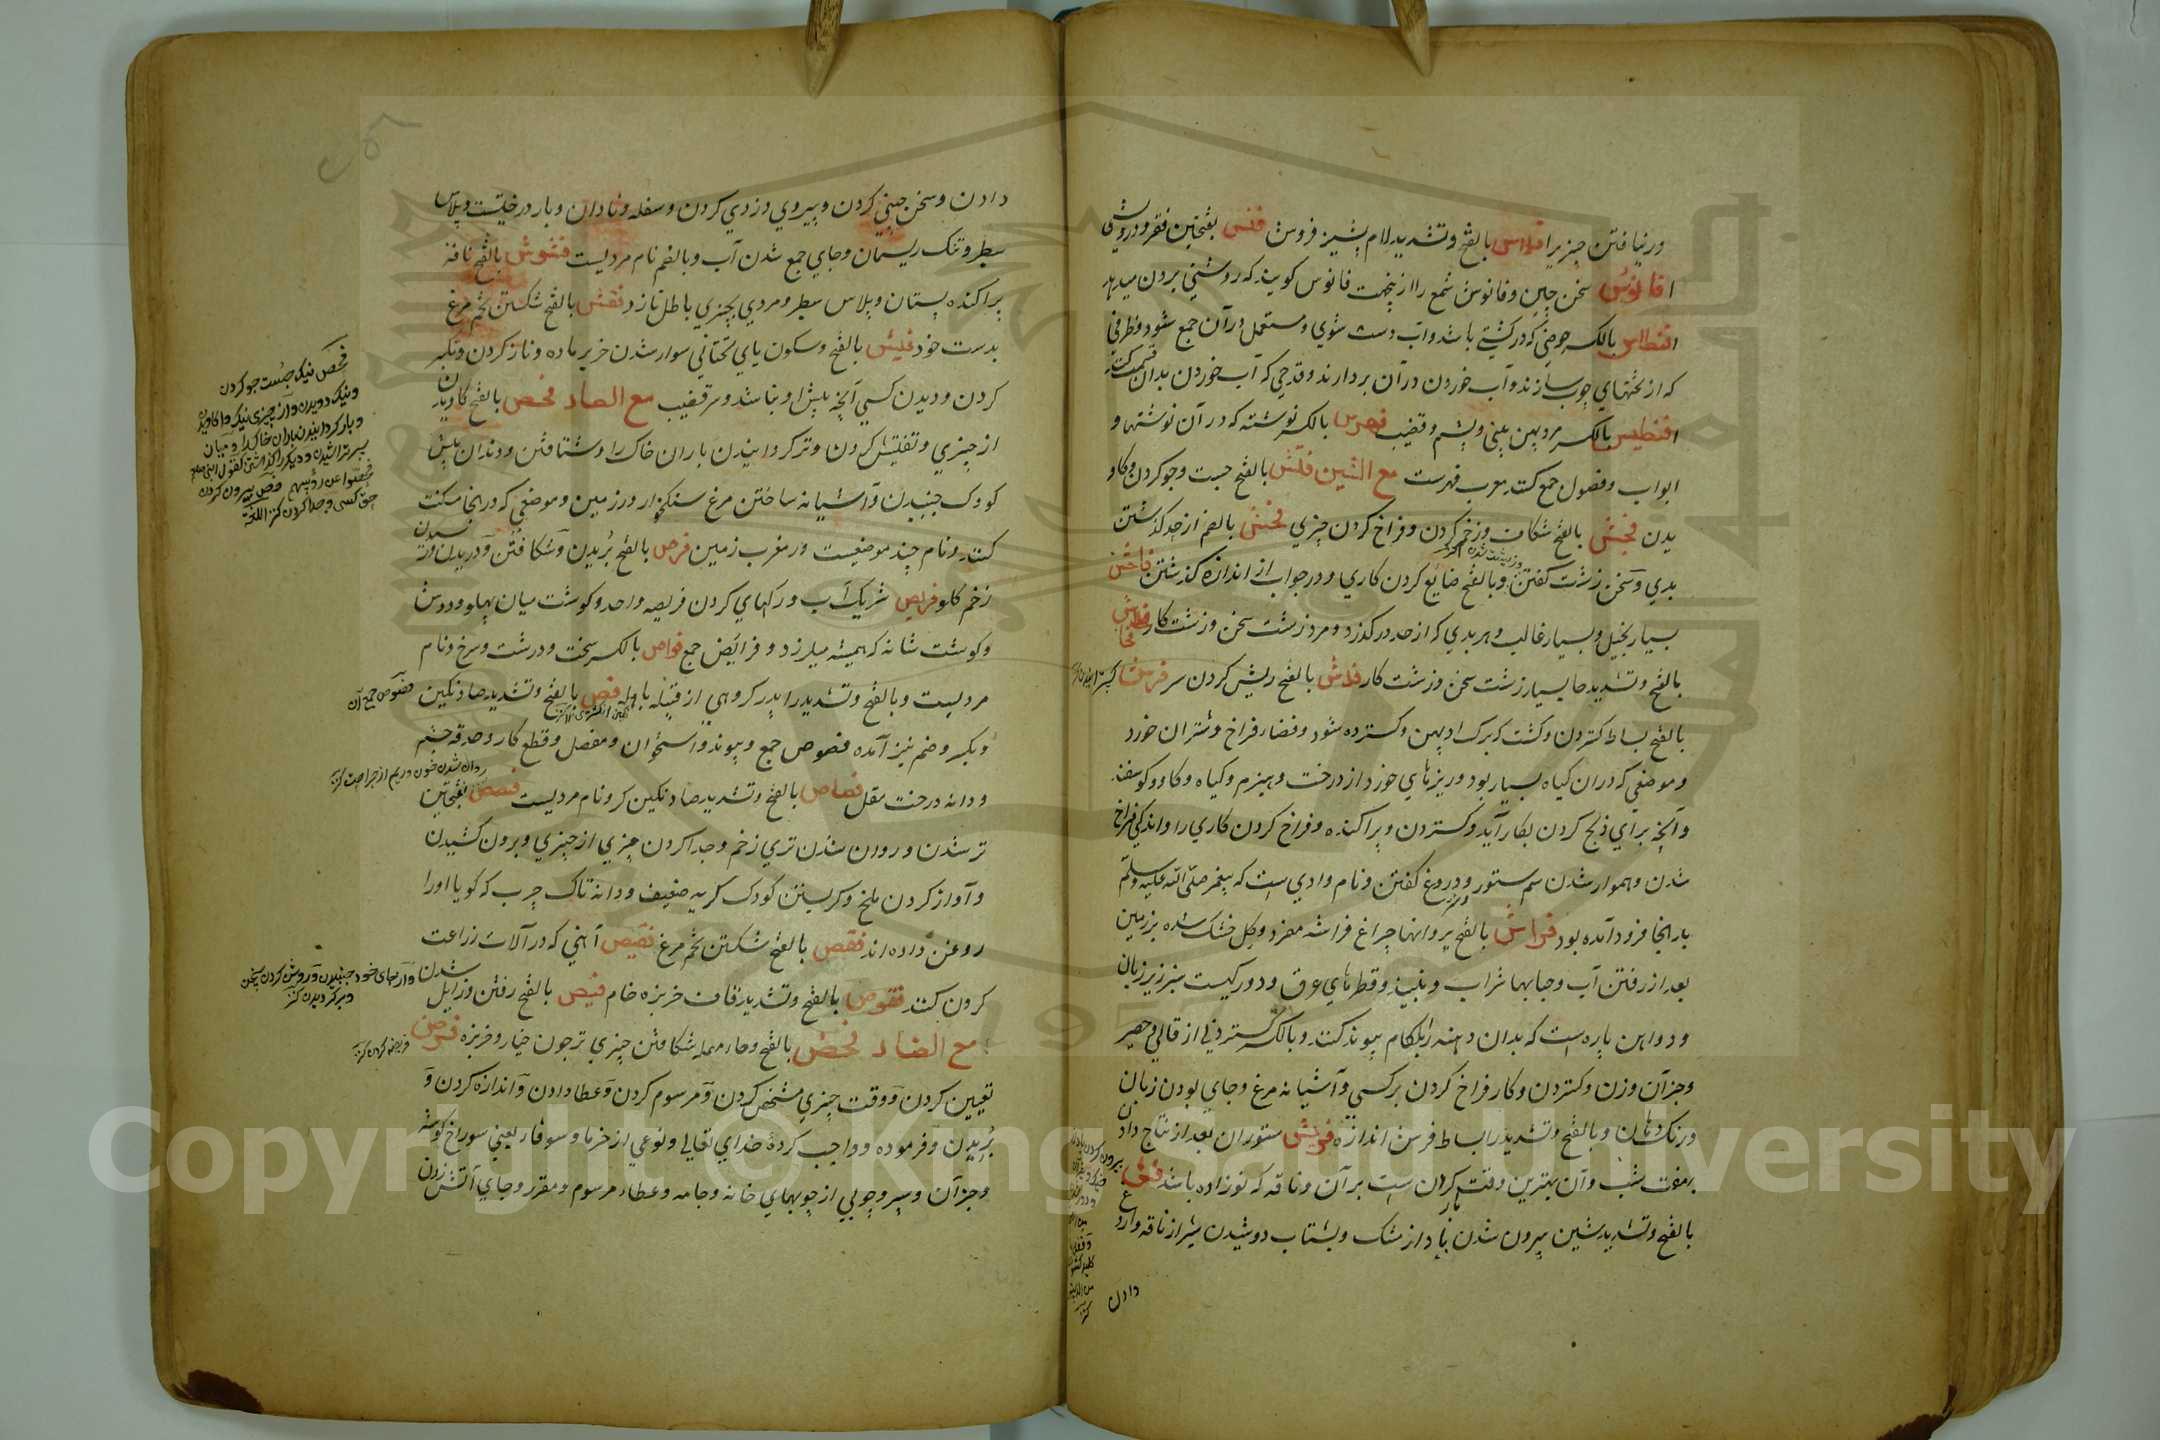 ور نیافتن چیزیرا فلاس بالفتح وتشدید لام پشیز فروش فنس بفتحتین فقر و درویشی
فانوس سخن چین و فانوس شمع را از ینجهت فانوس کویند که روشنی برون میدهد
فنطاس بالکسر حوضی که در کشتی باشد و آب دست شوی و مستعمل در آن جمع شود و ظرفی
که از تختهای چوب سازند و آب خوردن در آن بردارند و قدحی که آب خوردن بدان قسمت کنند
فنطیس بالکسر مرد پهن بینی و قضیب فهرس بالکسر نوشته که در آن نوشتهها و
ابواب و فصول جمع کنند معرب فهرست مع الشین فتش بالفتح جست وجو کردن و کاو
یدن فجش بالفتح شکافـ و زخم کردن و فراخ کردن چیزی فحش بالضم از حد کذشتن
بدی و سخن زشت کفتن وبالفتح ضایع کردن کاری و در جواب از اندازه کذشتن فاحش
بسیار بخیل و بسیار غالب و هر بدی که از حد در کذرد و مرد زشت سخن و زشت کار فحاش
بالفتح و تشدید حا بسیار زشت سخن و زشت کار فدش بالفتح ریش کردن سر فرش
بالفتح بساط کستردن وکشت که برک او پهن و کسترده شود و فضاء فراخ و شتران خورد
و موضعی که دران کیاه بسیار بود و ریزهای خورد از درخت و هیزم و کیاه و کاو و کوسفند
و آنچه برای ذبح کردن بکار آید و کستردن و پراکنده و فراخ کردن کاری را و اندکی فراخ
شدن و هموار شدن سم ستور و دروغ کفتن و نام وادی است که پیغمبر صلی الله علیه وسلم
بدانجا فرود آمده بود فراش بالفتح پروانها چراغ فراشه مفرد و کل خشک شده بر زمین
بعد از رفتن آب و حبابهای شراب و نبیذ و قطرهای عرق و دو رکیست سبز زیر زبان
و دو آهن پاره است که بدان دهنه را بلکام پیوند کنند و بالکسر کستردنی از قالی و حصیر
و جز آن و زن و کستردن و کار فراخ کردن بر کسی و آشیانه مرغ و جای بودن زبان
در تک دهان و بالفتح و تشدید را بساط فرش اندازه فریش ستوران بعد از نتاج دادن
بهفت شب و آن بهترین وقت کران است بر آن و ناقه که نو زاده باشد فش
بالفتح و تشدید شین بیرون شدن باد از مشک و بشتاب دوشیدن شیر از ناقه و آروغ
دادن
دادن و سخن چینی کردن و پیروی دزدی کردن و سفله و نادان و بار درختیست و پلاس
سطبر و تنک ریسمان و جای جمع شدن آب وبالضم نام مردیست فشوش بالفتح ناقه
پراکنده پستان و پلاس سطبر و مردی بچیزی باطل نازد فقش بالفتح شکستن تخم مرغ
بدست خود فیش بالفتح و سکون یای تحتانی سوار شدن خر بر ماده و ناز کردن و تکبر
کردن و دیدن کسی آنچه پیش او نباشد و سر قضیب مع الصاد فحص بالفتح کاویدن
از چیزی و تفتیش کردن و تر کردانیدن باران خاک را و شتافتن و دندان پیش
کودک جنبیدن و آشیانه ساختن مرغ سنکخوار در زمین و موضعی که در آنجا سکنت
کنند و نام چند موضعست در مغرب زمین فرص بالفتح بریدن و شکافتن و دریدن
زخم کلو فریص شریک آب و رکهای کردن فریصه واحد و کوشت میان پهلو و دوش
و کوشت شانه که همیشه میلرزد و فرایص جمع فراص بالکسر سخت و درشت و سرخ و نام
مردیست و بالفتح و تشدید را پدر کروهی از قبیله باهله فص بالفتح و تشدید صاد نکین
و بکسر و ضم نیز آمده فصوص جمع و پیوند و استخوان و مفصل و قطع کار و حدقه چشم
و دانه درخت مقل فصاص بالفتح و تشدید صاد نکین کر و نام مردیست فصص بفتحتین
تر شدن و روان شدن تری زخم و جدا کردن چیزی از چیزی و برون کشیدن
و آواز کردن ملخ و کریستن کودک کریه ضعیف و دانه تاک چرب که کویا اورا
روغن داده اند فقص بالفتح شکستن تخم مرغ فقیص آهنی که در آلات زراعت
کرون کنند فقوص بالفتح و تشدید قاف خربزه خام فیص بالفتح رفتن و زایل شدن
مع الضاد فحض بالفتح و حاء مهمله شکافتن چیزی تر چون خیار و خربزه فرض
تعیین کردن و وقت چیزی مشخص کردن و مرسوم کردن و عطا دادن و اندازه کردن و
بریدن و فرموده و واجب کرده خدای تعالی و نوعی از خرما و سوفار یعنی سوراخ کوشه
و جز آن و سپر و چوبی از چوبهای خانه و جامه و عطاء مرسوم و مقرر و جای آتش زدن
فحص نیک جست جو کردن
فصوص جمع آن
روان شدن خون و ریم از جراحت